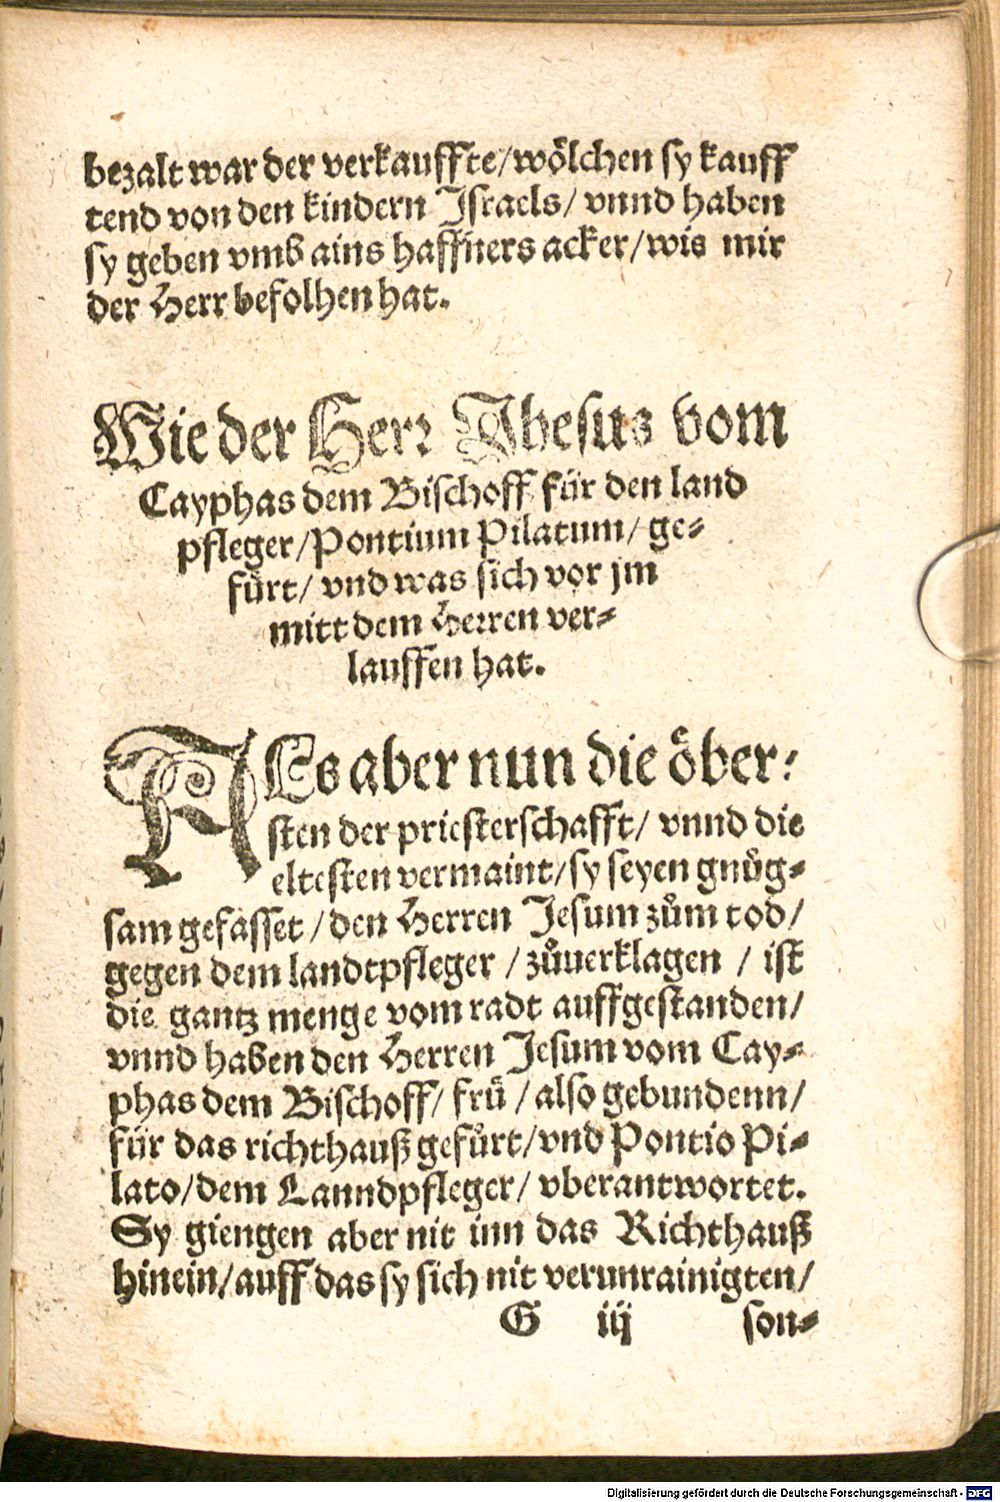 bezalt war der verkauffte/wölchen sy kauff
tend von den kindern Israels/ vnnd haben
sy geben vmb ains haffners acker/wie mir
der Herr befolhen hat.
Wie der Herr Jhesus vom
Cayphas dem Bischoff für den land
pfleger/Pontium Pilatum/ ge-
fürt/ vnd was sich vor jm
mitt dem Herren ver-
lauffen hat.
ALs aber nun die öber-
sten der priesterschafft/ vnnd die
eltesten vermaint/sy seyen gnůg-
sam gefasset /den Herren Jesum zům tod/
gegen dem landtpfleger /zůuerklagen / ist
die gantz menge vom radt auffgestanden/
vnnd haben den Herren Jesum vom Cay-
phas dem Bischoff/ frü /also gebundenn/
für das richthauß gefürt/vnd Pontio Pi-
lato/dem Lanndpfleger/ vberantwortet.
Sy giengen aber nit inn das Richthauß
hinein/auff das sy sich nit verunrainigten/
G iij son-
Digitalisierung gefördert durch die Deutsche Forschungsgemeinschaft - DFG